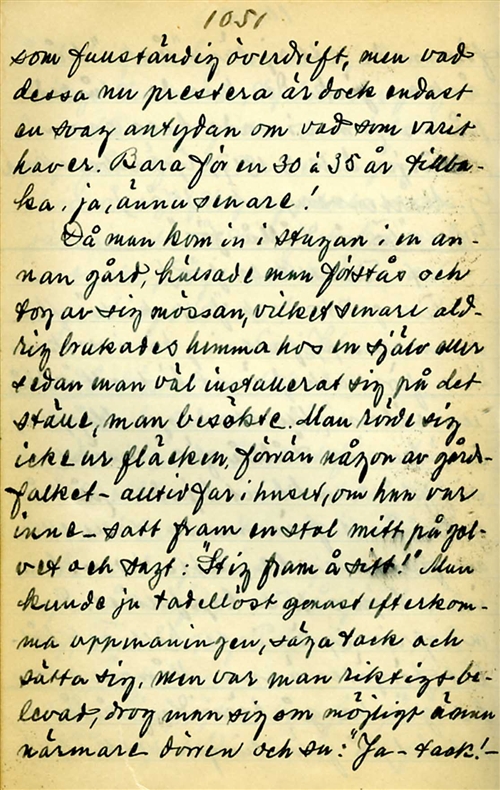 1051
som fullständig överdrift, men vad
dessa nu prestera är dock endast
en svag antydan om vad som varit
haver. Bara för en 30 à 35 år tillba-
ka, ja, ännu senare!
Då man kom in i stugan i en an-
nan gård, hälsade man förstås och
tog av sig mössan, vilket senare ald-
rig brukades hemma hos en själv eller
sedan man väl installerat sig på det
ställe, man besökte. Man rörde sig
icke ur fläcken, förrän någon av gårds-
folket - alltid far i huset, om han var
inne - satt fram en stol mitt på gol-
vet och sagt: "Stig fram å sitt!" Man
kunde ju tadellöst genast efterkom-
ma uppmaningen, säga tack och
sätta sig, men var man riktigt be-
levad, drog man sig om möjligt ännu
närmare dörren och sa: "Ja - tack! -